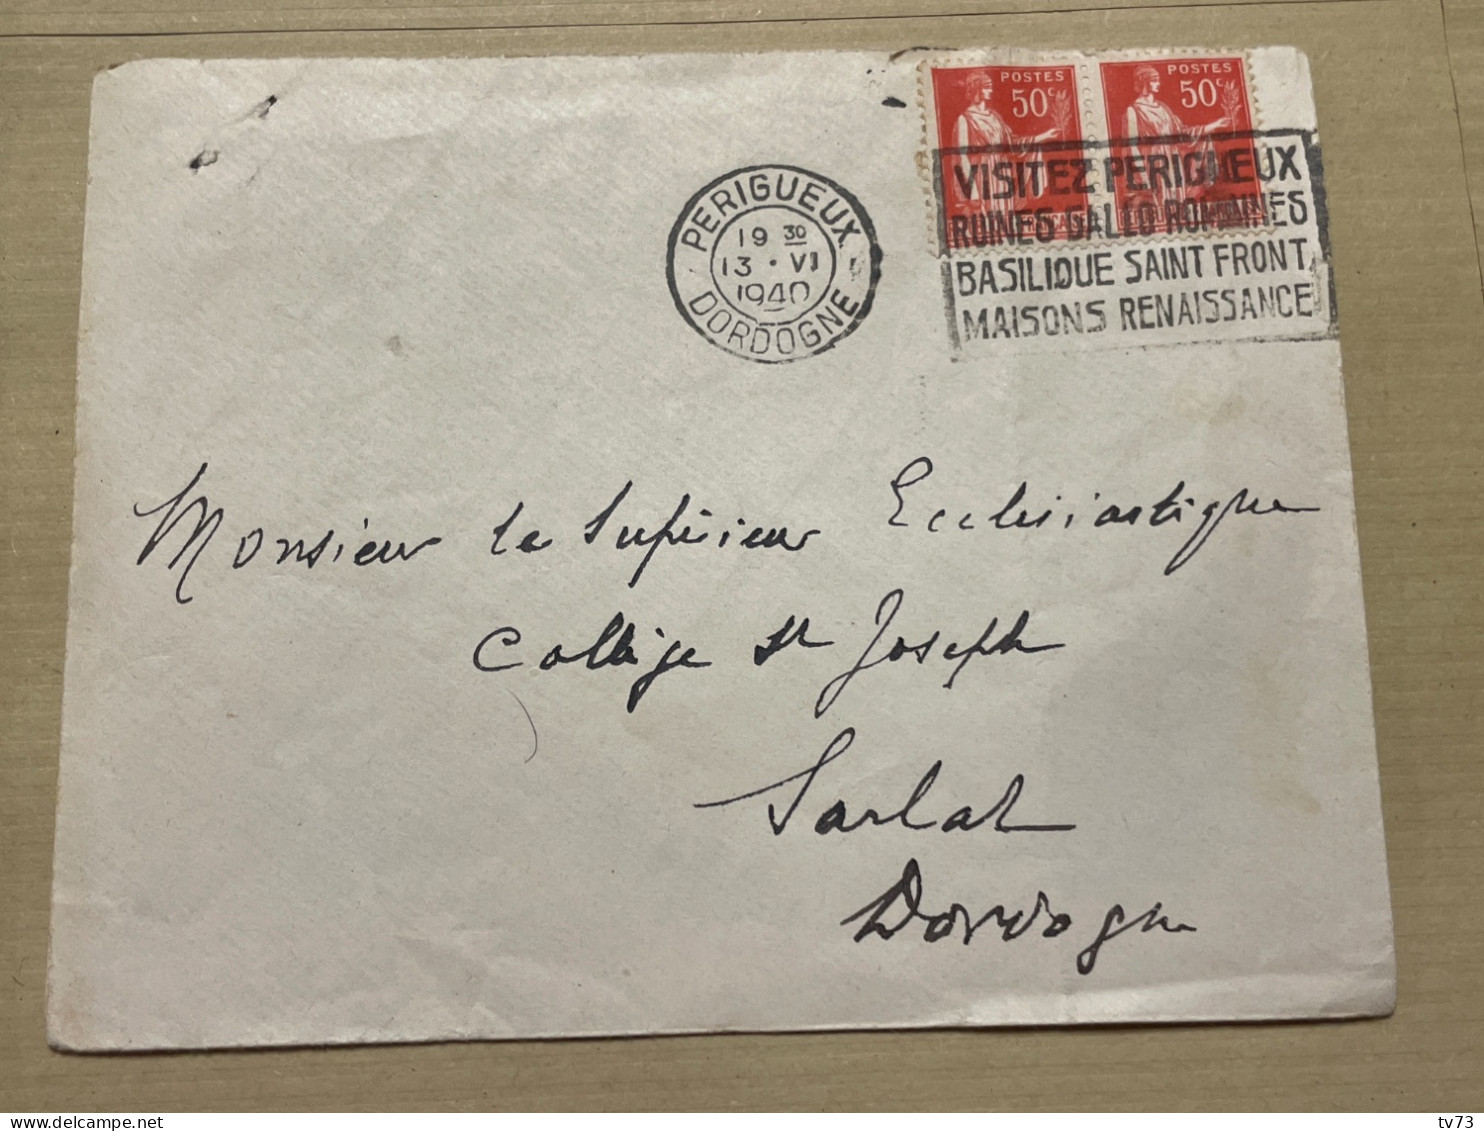 POSTES POSTES
50c 50c
VISITEZ PERIGUEUX
RUINES GALLO ROMAINES
BASILIQUE SAINT FRONT
MAISONS RENAISSANCE
PERIGUEUX
19 30
13 • VI
1940
DORDOGNE
Monsieur le Supérieur Ecclésiastique
Collège St Joseph
Sarlat
Dordogne
tv73